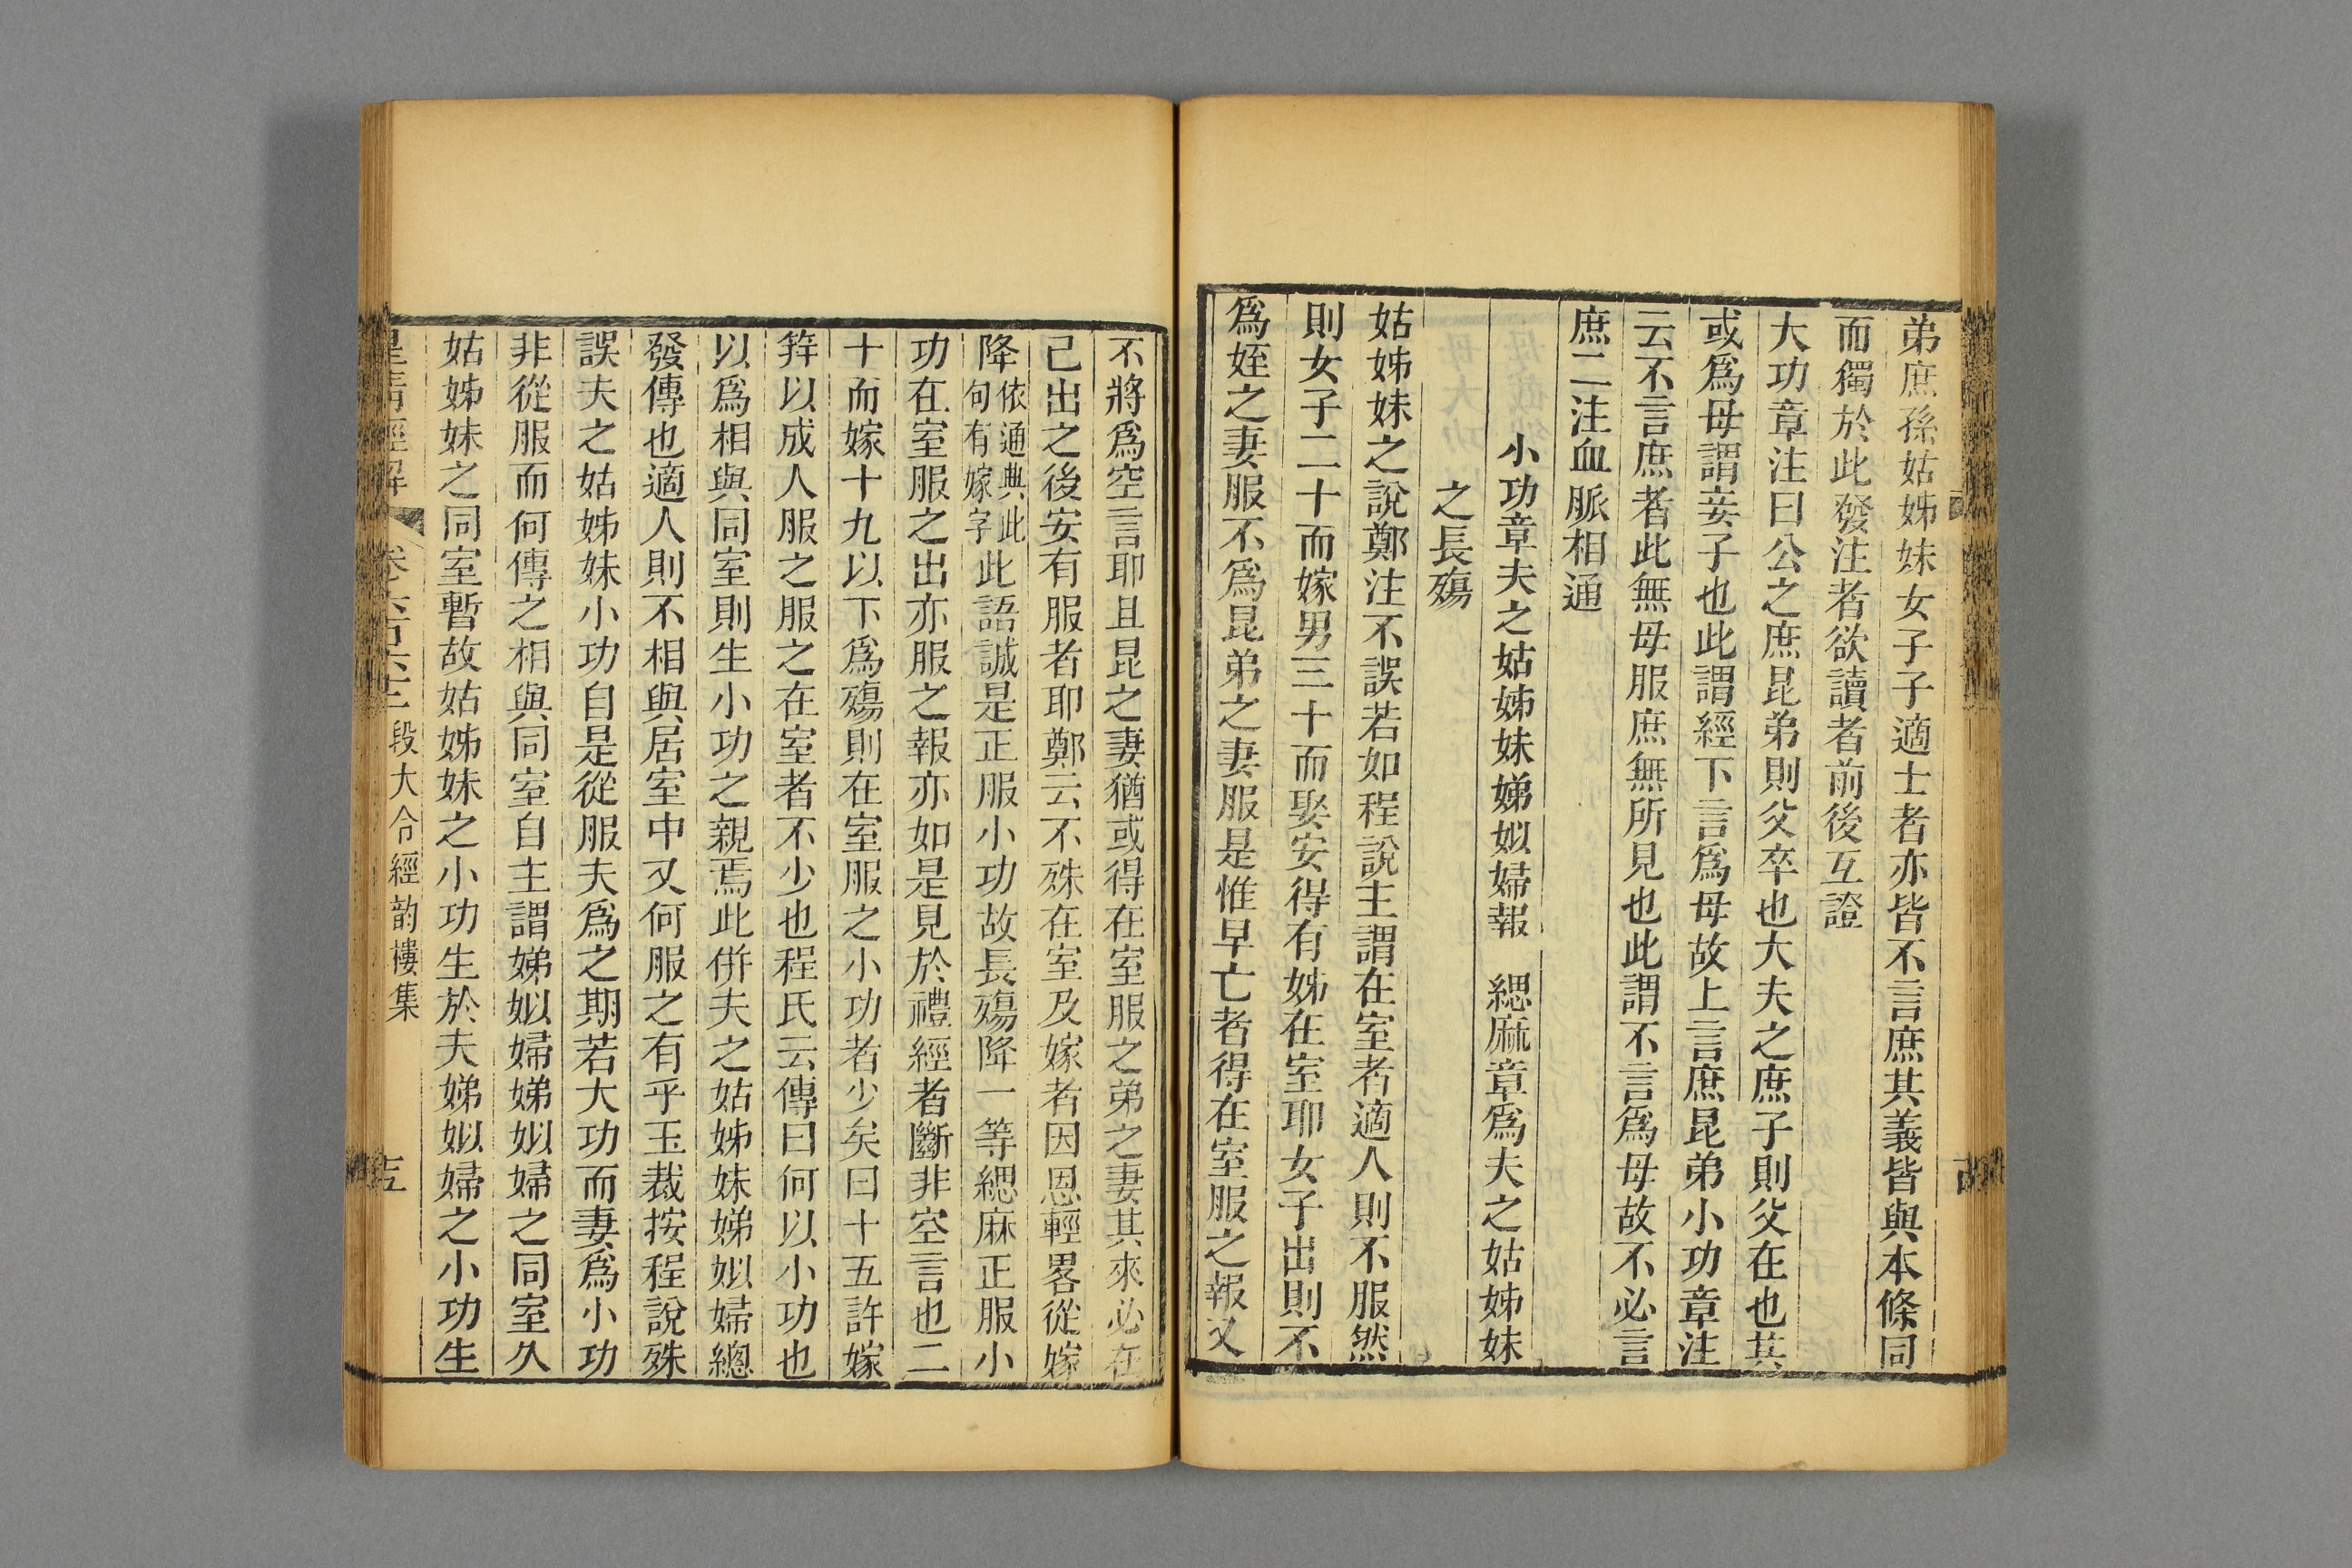 弟庶孫姑姊妹女子子適士者亦皆不言庶其義皆與本條同
而獨於此發注者欲讀者前後互證
大功章注曰公之庶昆弟則父卒也大夫之庶子則父在也其
或爲母謂妾子也此謂經下言爲母故上言庶昆弟小功章注
云不言庶者此無母服庶無所見也此謂不言爲母故不必言
庶二注血脈相通
小功章夫之姑姊妹娣姒婦報　緦麻章爲夫之姑姊妹
之長殤
姑姊妹之說鄭注不誤若如程說主謂在室者適人則不服然
則女子二十而嫁男三十而娶安得有姊在室耶女子出則不
爲姪之妻服不爲昆弟之妻服是惟早亡者得在室服之報又
不將爲空言耶且昆之妻猶或得在室服之弟之妻其來必在
己出之後安有服者耶鄭云不殊在室及嫁者因恩輕畧從嫁
降依通典此句有嫁字此語誠是正服小功故長殤降一等緦麻正服小
功在室服之出亦服之報亦如是見於禮經者斷非空言也二
十而嫁十九以下爲殤則在室服之小功者少矣曰十五許嫁
笄以成人服之服之在室者不少也程氏云傳曰何以小功也
以爲相與同室則生小功之親焉此併夫之姑姊妹娣姒婦總
發傳也適人則不相與居室中又何服之有乎玉裁按程說殊
誤夫之姑姊妹小功自是從服夫爲之期若大功而妻爲小功
非從服而何傳之相與同室自主謂娣姒婦娣姒婦之同室久
姑姊妹之同室暫故姑姊妹之小功生於夫娣姒婦之小功生
皇清經解　卷六百六十二　段大令經韵樓集